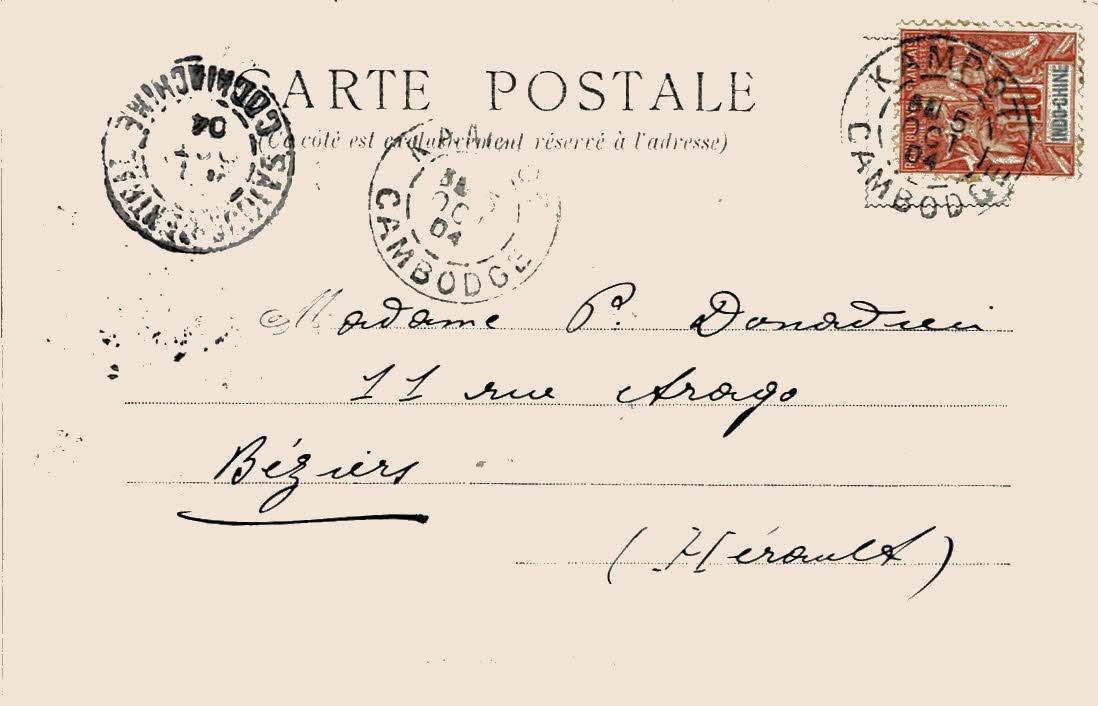 CARTE POSTALE
(Ce côté est exclusivement réservé à l'adresse)
INDO-CHINE
10
KAMPOT
5
OCT
04
CAMBODGE
OC
04
CAMBODGE
COCHINCHINE
04
Madame P. Donadieu
11 rue Arago
Béziers
(Hérault)